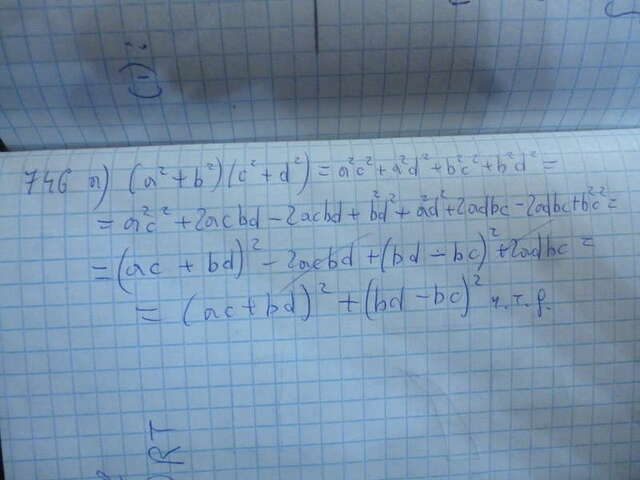 (1) ?
746 а) (a²+b²)(c²+d²) = a²c²+a²d²+b²c²+b²d² =
= a²c²+2acbd-2acbd+b²d²+a²d²+2adbc-2adbc+b²c² =
= (ac+bd)²-2acbd+(bd-bc)²+2adbc =
= (ac+bd)²+(bd-bc)² ч.т.д.
ORT